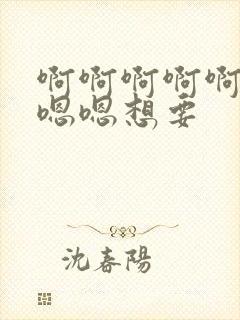 啊啊啊啊啊
嗯嗯想要
沈春陽